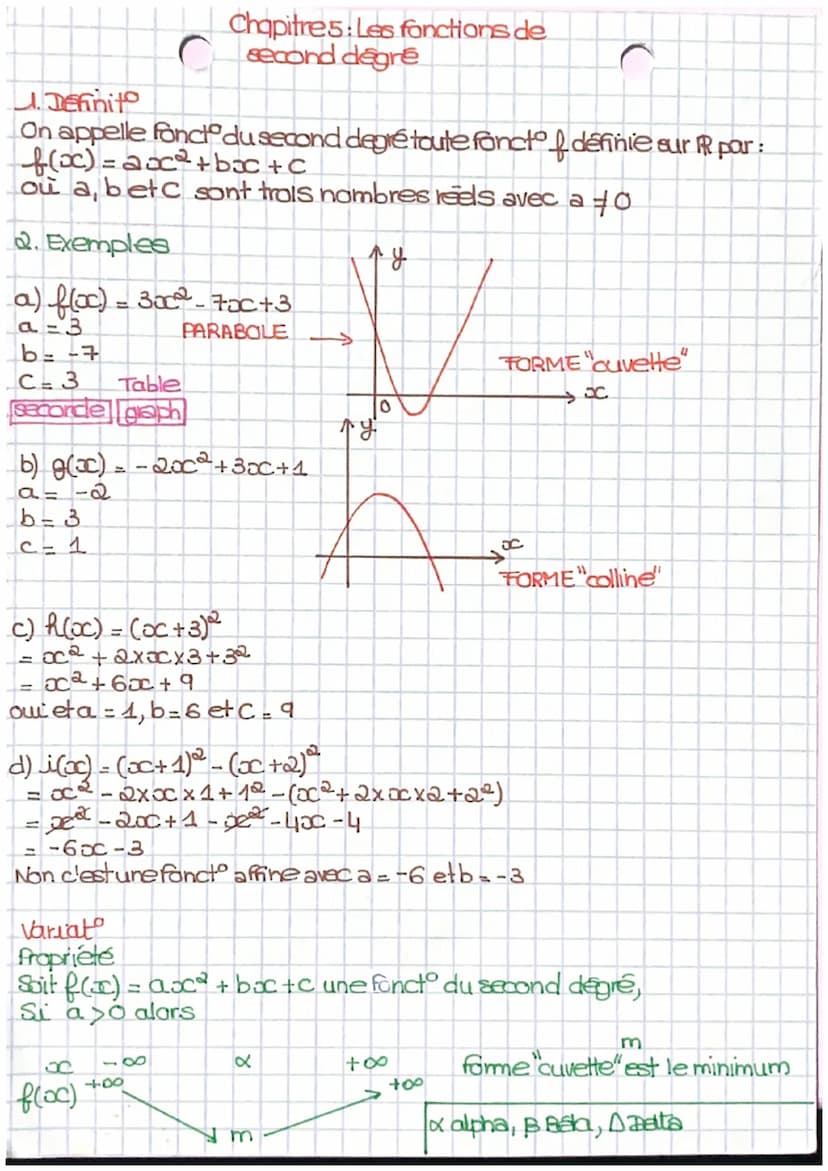 Chapitre 5 : Les fonctions de
second dégré
1. Définit°
On appelle fonct° du second degré toute fonct° f définie sur ℝ par :
f(x) = ax² + bx + c
où a, b et c sont trois nombres réels avec a ≠ 0
2. Exemples
y
a) f(x) = 3x² - 7x + 3
a = 3
PARABOLE
b = -7
FORME "cuvette"
c = 3
Table
x
seconde graph
0
y
b) g(x) = -2x² + 3x + 1
a = -2
b = 3
c = 1
x
FORME "colline"
c) h(x) = (x+3)²
= x² + 2×x×3 + 3²
= x² + 6x + 9
oui et a = 1, b = 6 et c = 9
d) i(x) = (x+1)² - (x+2)²
= x² - 2×x×1 + 1² - (x² + 2×x×2 + 2²)
= x² - 2x + 1 - x² - 4x - 4
= -6x - 3
Non c'est une fonct° affine avec a = -6 et b = -3
Variat°
Propriété
Soit f(x) = ax² + bx + c une fonct° du second dégré,
Si a > 0 alors
m
x -∞ α +∞ forme "cuvette" est le minimum
f(x) +∞ +∞
m
α alpha, β Béta, Δ Delta